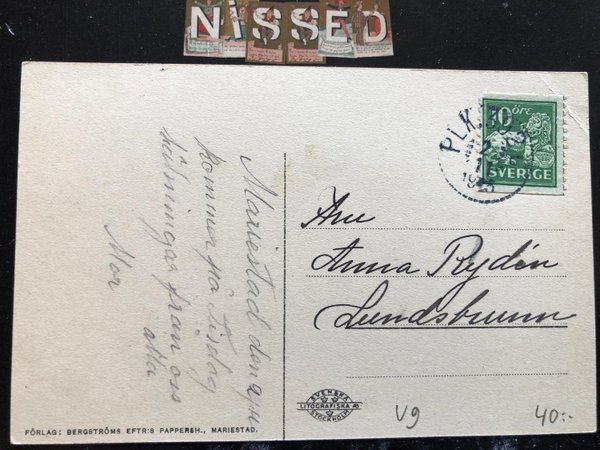 NiSSED
Mariestad den
kommer på Tisdag
hälsningar från oss
alla
Mor
10 ÖRE
SVERIGE
PLK
Anna Rydén
Lundsbrunn
SVENSKA
LITOGRAFISKA AB
STOCKHOLM
V9
40:-
FÖRLAG: BERGSTRÖMS EFTR:S PAPPERSH., MARIESTAD.